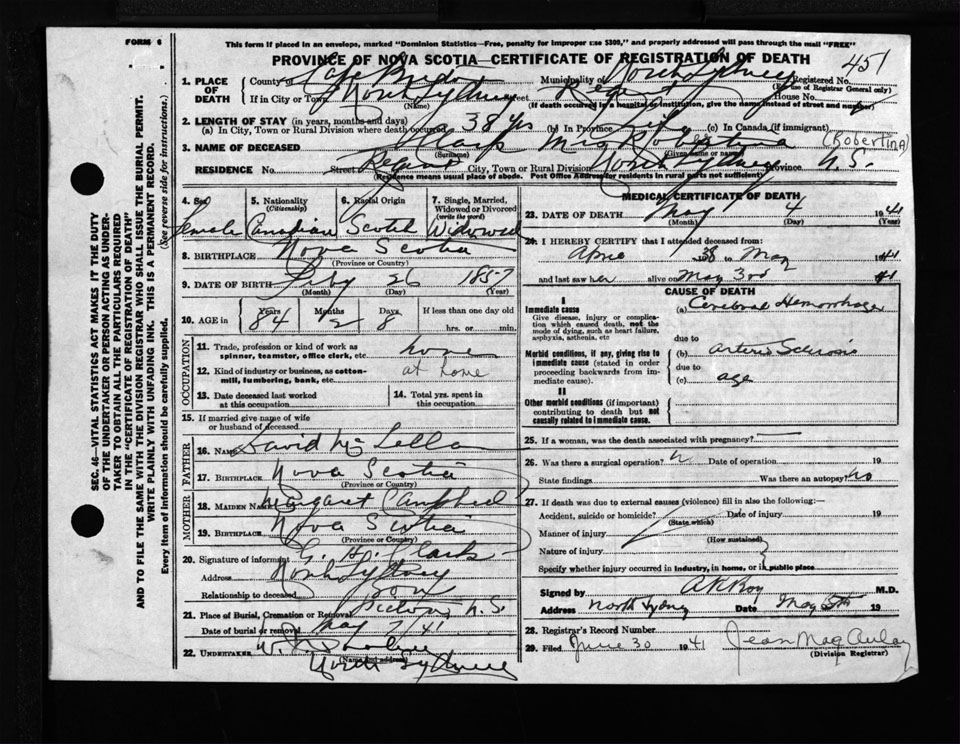 FORM 6
This form if placed in an envelope, marked "Dominion Statistics—Free, penalty for improper use $300," and properly addressed will pass through the mail "FREE"
PROVINCE OF NOVA SCOTIA—CERTIFICATE OF REGISTRATION OF DEATH
451
1. PLACE OF DEATH
County of Cape Breton Municipality of North Sydney Registered No.
(For use of Registrar General only)
If in City or Town North Sydney Street Regent House No.
(Name) (If death occurred in a hospital or institution, give the name instead of street and number)
2. LENGTH OF STAY (in years, months and days)
(a) In City, Town or Rural Division where death occurred 38 yrs (b) In Province Life (c) In Canada (if immigrant)
3. NAME OF DECEASED Mrs Robertina (Robertina)
(Surname) (Given name or names)
RESIDENCE No. Street Regent City, Town or Rural Division North Sydney Province N.S.
(Residence means usual place of abode. Post Office Address for residents in rural parts not sufficient)
4. Sex Female
5. Nationality (Citizenship) Canadian
6. Racial Origin Scotch
7. Single, Married, Widowed or Divorced (write the word) Widowed
8. BIRTHPLACE Nova Scotia
(Province or Country)
9. DATE OF BIRTH Feby 26 1857
(Month) (Day) (Year)
10. AGE in Years 84 Months 2 Days 8 If less than one day old hrs. or min.
OCCUPATION
11. Trade, profession or kind of work as spinner, teamster, office clerk, etc.
12. Kind of industry or business, as cotton-mill, lumbering, bank, etc. at home
13. Date deceased last worked at this occupation
14. Total yrs. spent in this occupation
15. If married give name of wife or husband of deceased
FATHER
16. NAME David
17. BIRTHPLACE Nova Scotia
(Province or Country)
MOTHER
18. MAIDEN NAME Margaret Campbell
19. BIRTHPLACE Nova Scotia
(Province or Country)
20. Signature of informant
Address North Sydney
Relationship to deceased son
21. Place of Burial, Cremation or Removal Pictou N.S.
Date of burial or removal May 7/41
22. UNDERTAKER
(Name and address)
North Sydney
MEDICAL CERTIFICATE OF DEATH
23. DATE OF DEATH May 4 1941
(Month) (Day) (Year)
24. I HEREBY CERTIFY that I attended deceased from:
April 1938 to May 1941
and last saw her alive on May 3rd 41
CAUSE OF DEATH
I
Immediate cause
Give disease, injury or complication which caused death, not the mode of dying, such as heart failure, asphyxia, asthenia, etc
(a) Cerebral Hemorrhage
due to
Morbid conditions, if any, giving rise to immediate cause (stated in order proceeding backwards from immediate cause).
(b) Arterio Sclerosis
due to
(c) age
II
Other morbid conditions (if important) contributing to death but not causally related to immediate cause.
25. If a woman, was the death associated with pregnancy?
26. Was there a surgical operation? Date of operation 19
State findings Was there an autopsy? no
27. If death was due to external causes (violence) fill in also the following:—
Accident, suicide or homicide? Date of injury 19
(State which)
Manner of injury
(How sustained)
Nature of injury
Specify whether injury occurred in industry, in home, or in public place
Signed by M.D.
Address North Sydney Date May 5th 19
28. Registrar's Record Number
29. Filed June 30 1941 Jean MacAulay
(Division Registrar)
SEC. 46—VITAL STATISTICS ACT MAKES IT THE DUTY
OF THE UNDERTAKER OR PERSON ACTING AS UNDER-
TAKER TO OBTAIN ALL THE PARTICULARS REQUIRED
IN THE "CERTIFICATE OF REGISTRATION OF DEATH"
AND TO FILE THE SAME WITH THE DIVISION REGISTRAR WHO SHALL ISSUE THE BURIAL PERMIT.
WRITE PLAINLY WITH UNFADING INK. THIS IS A PERMANENT RECORD.
Every item of information should be carefully supplied. (See reverse side for instructions.)